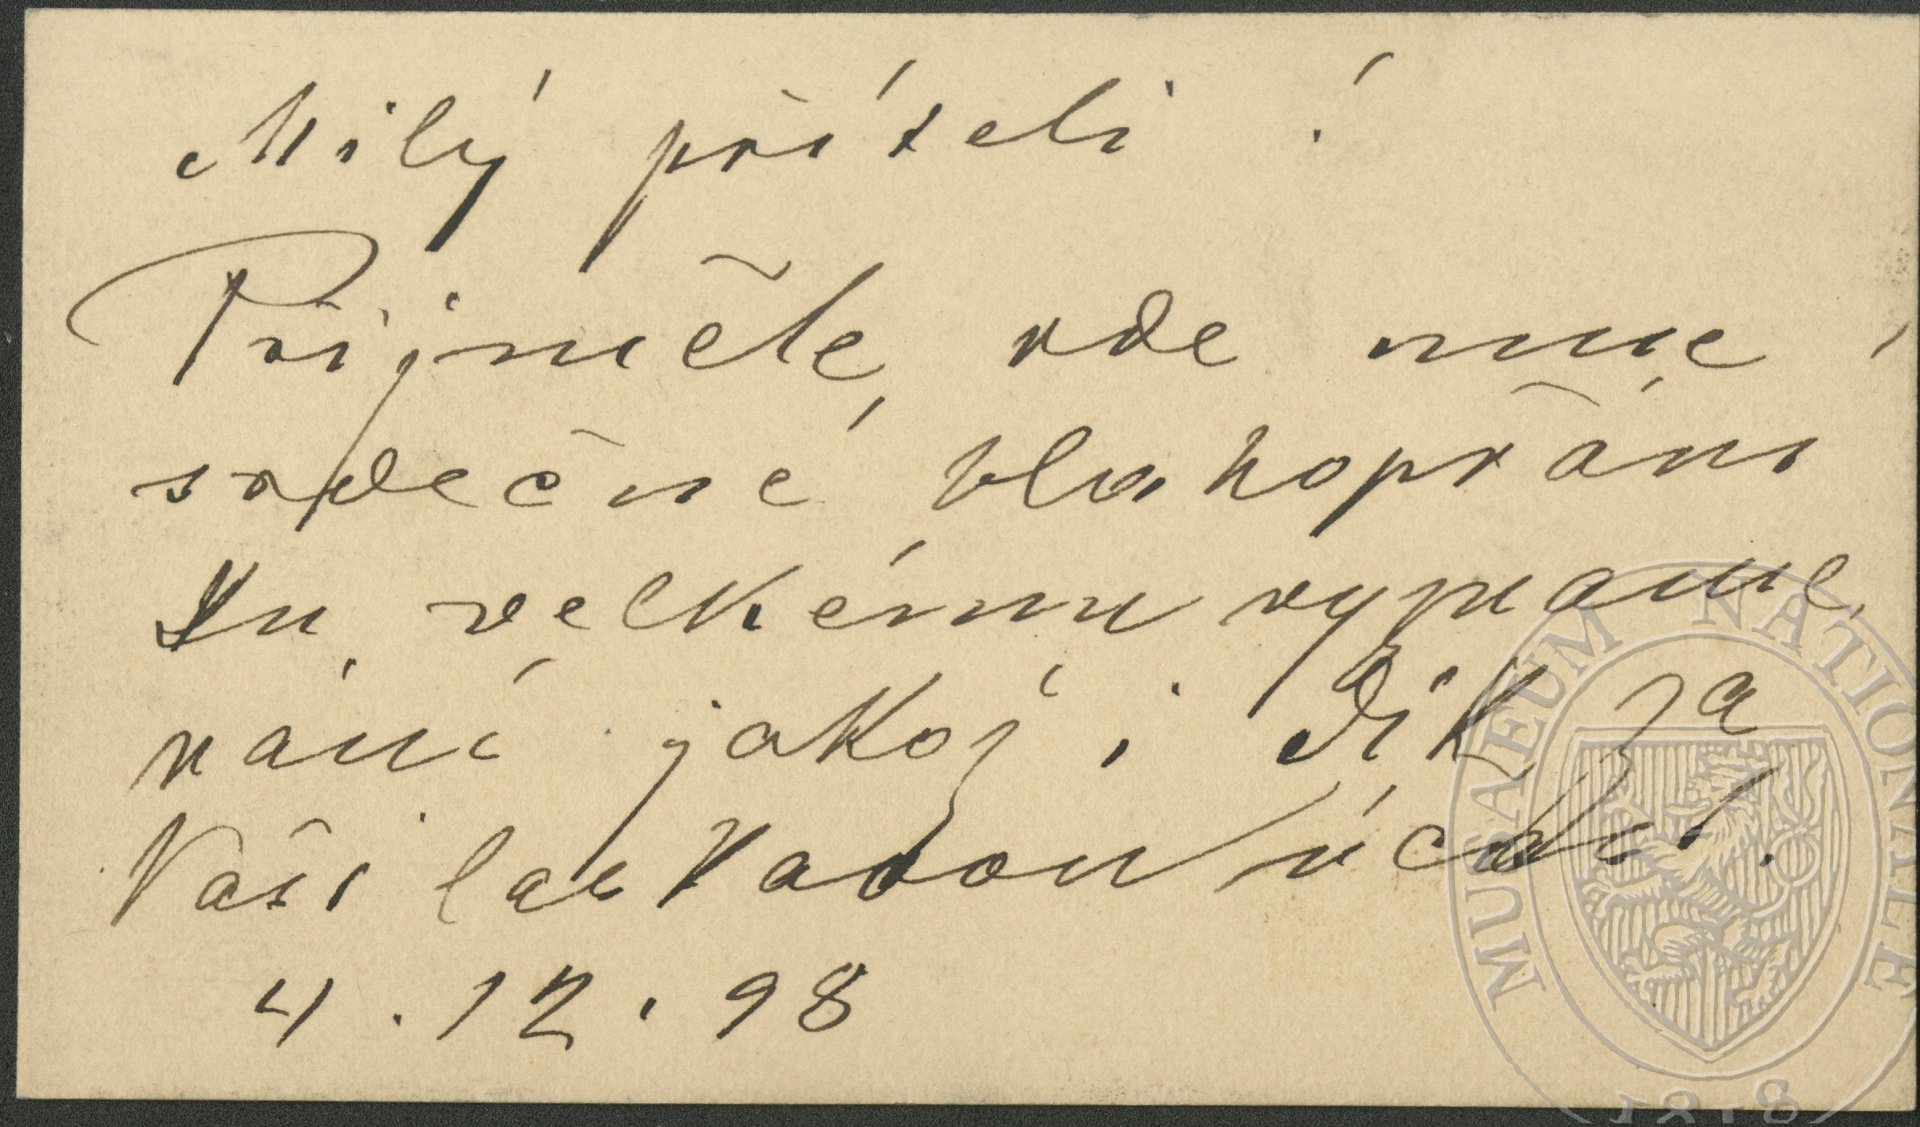 Milý příteli!
Přijměte ode mne
srdečné blahopřání
ku velkému vyzname-
nání jakož i dík za
Vaši laskavou účast.
4.12.98
MUSAEUM NATIONALE
1818